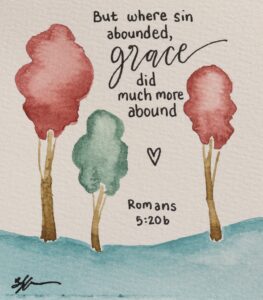 But where sin
abounded,
grace
did
much more
abound
Romans
5:20b